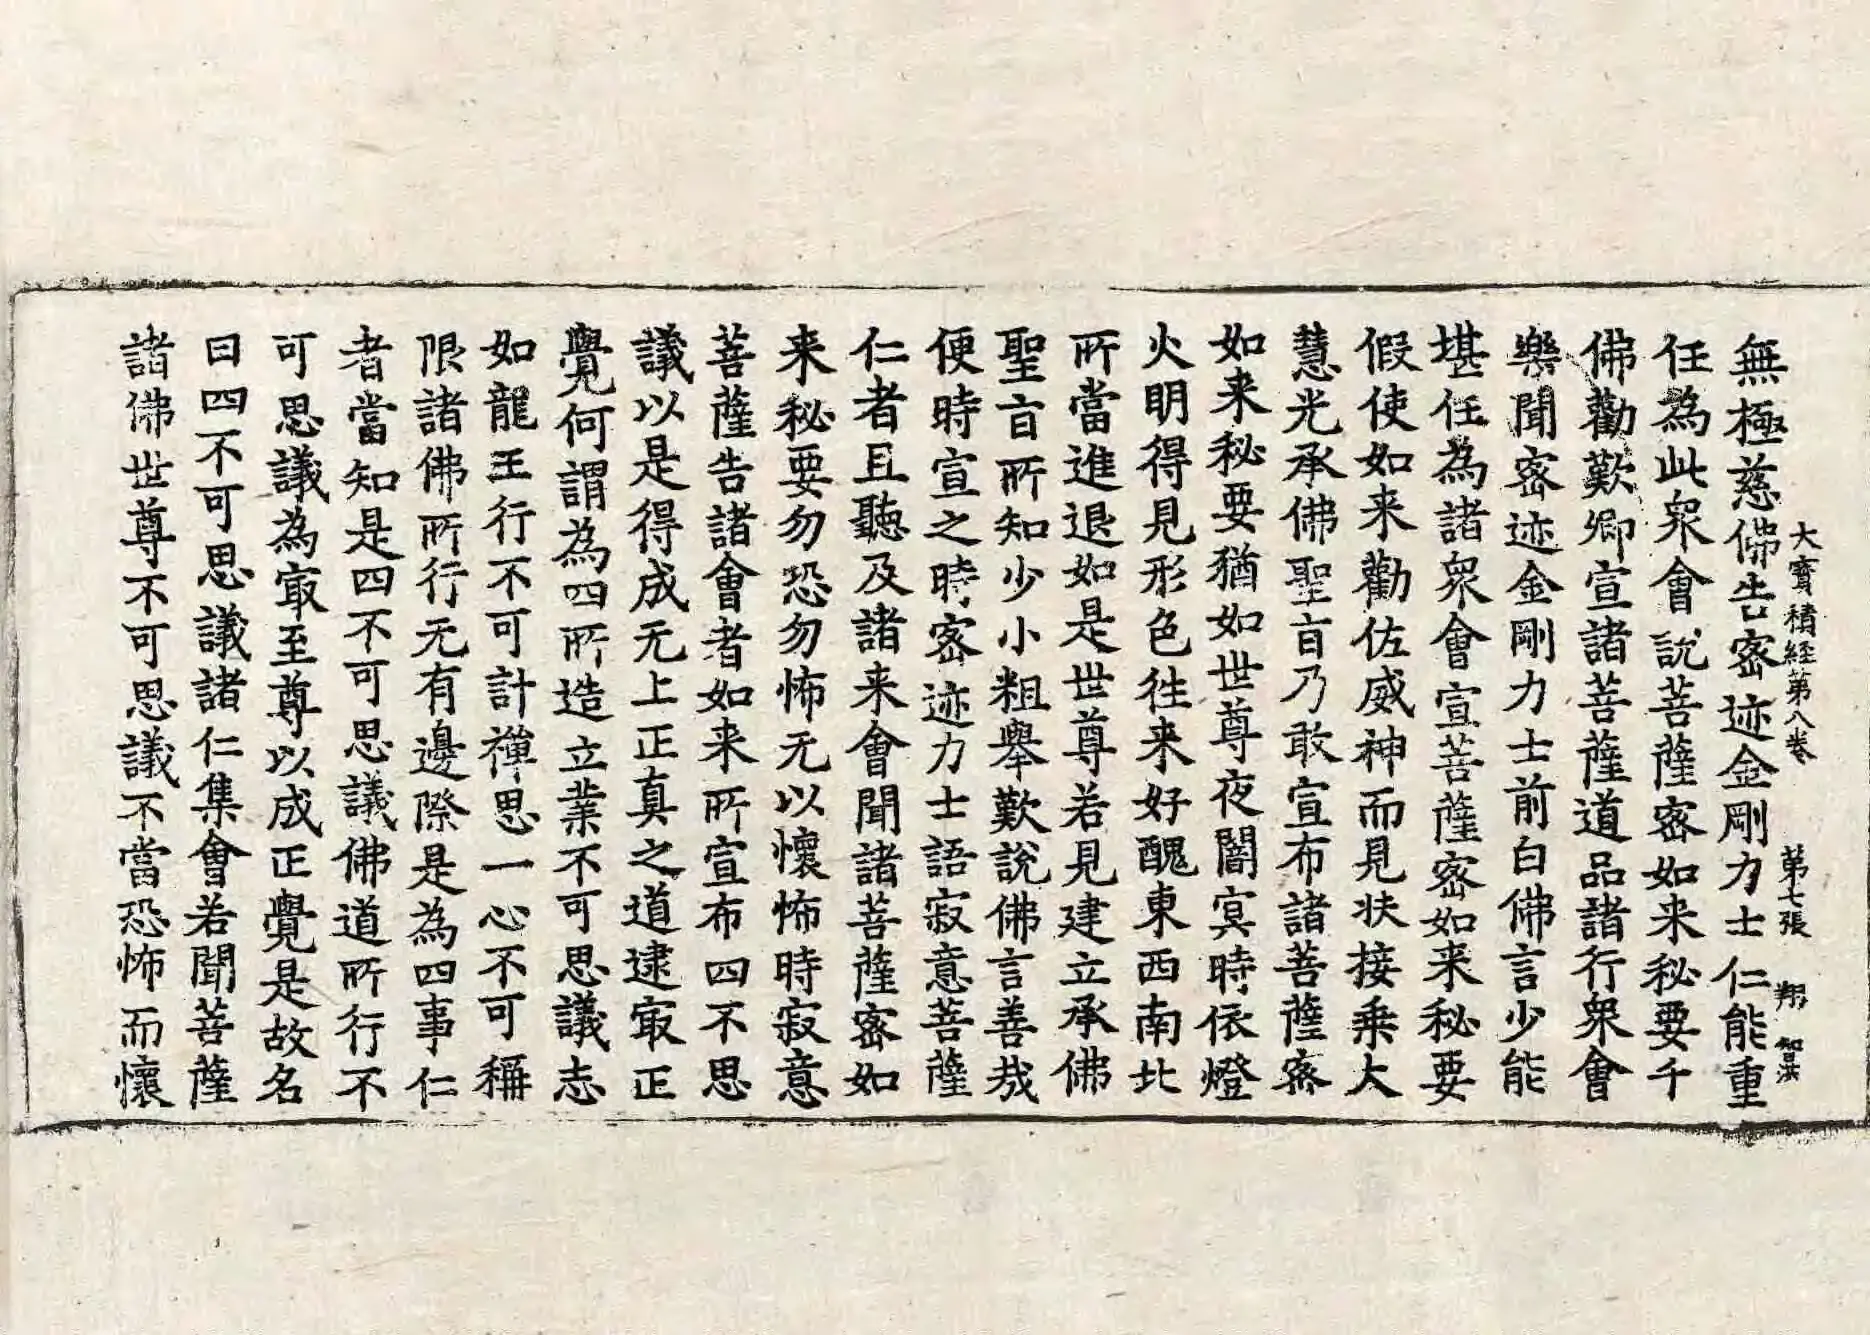 大寶積経第八卷　第七張　翔
無極慈佛告密迹金剛力士仁能重
任為此衆會說菩薩密如来秘要千
佛勸歎卿宣諸菩薩道品諸行衆會
樂聞密迹金剛力士前白佛言少能
堪任為諸衆會宣菩薩密如来秘要
假使如来勸佐威神而見扶接乗大
慧光承佛聖旨乃敢宣布諸菩薩密
如来秘要猶如世尊夜闇冥時依燈
火明得見形色徃来好醜東西南北
所當進退如是世尊若見建立承佛
聖旨所知少小粗舉歎說佛言善哉
便時宣之時密迹力士語寂意菩薩
仁者且聽及諸来會聞諸菩薩密如
来秘要勿恐勿怖无以懷怖時寂意
菩薩告諸會者如来所宣布四不思
議以是得成无上正真之道逮㝡正
覺何謂為四所造立業不可思議志
如龍王行不可計禪思一心不可稱
限諸佛所行无有邊際是為四事仁
者當知是四不可思議佛道所行不
可思議為㝡至尊以成正覺是故名
曰四不可思議諸仁集會若聞菩薩
諸佛世尊不可思議不當恐怖而懷